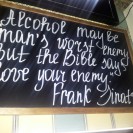 "Alcohol may be
man's worst enemy
But the Bible says
love your enemy"
Frank Sinat